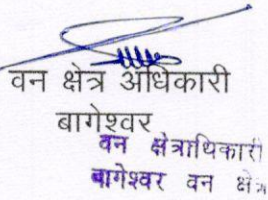 वन क्षेत्र अधिकारी
बागेश्वर
वन क्षेत्राधिकारी
बागेश्वर वन